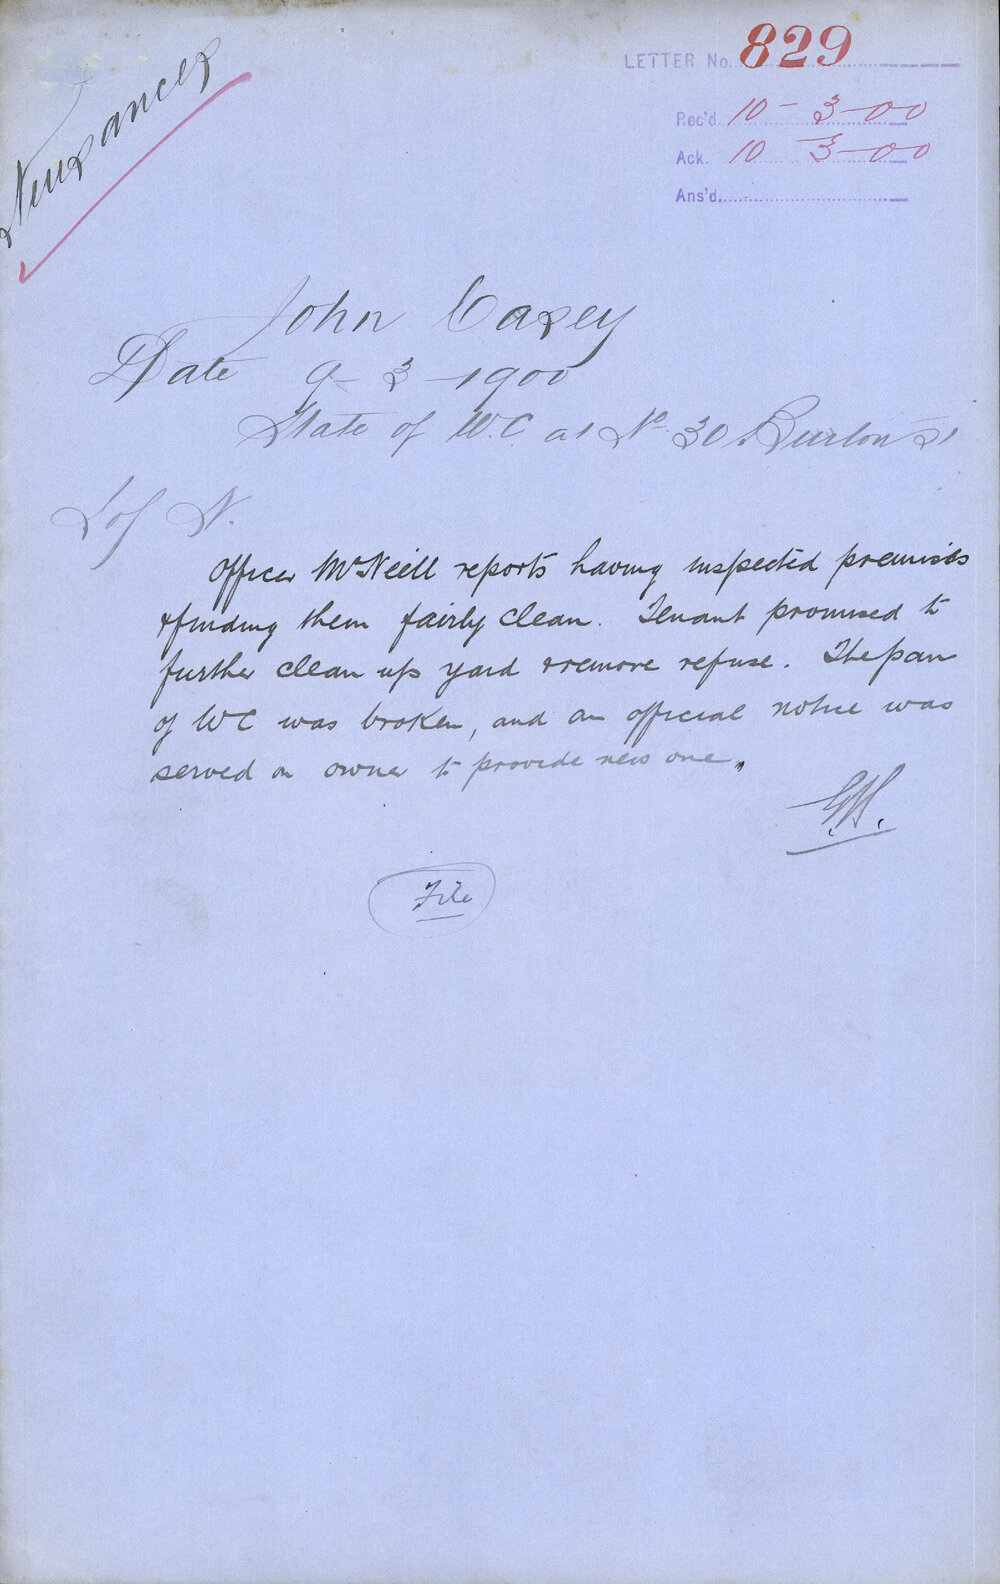 Nuisances
LETTER No. 829
Rec'd. 10-3-00
Ack. 10 3-00
Ans'd.
John Casey
Date 9-3-1900
State of W.C at No 30 Burton St
I of N.
Officer McNeill reports having inspected premises
& finding them fairly clean. Tenant promised to
further clean up yard & remove refuse. The pan
of WC was broken, and an official notice was
served on owner to provide new one.
File